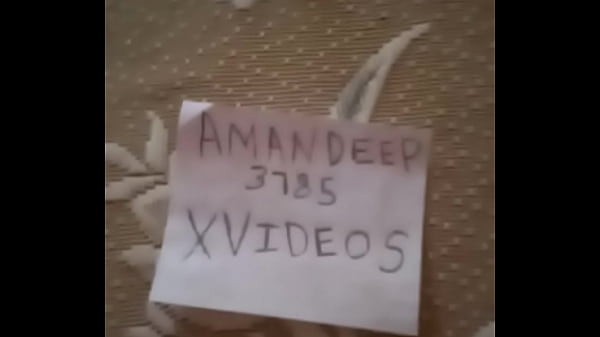 AMANDEEP
3785
XVIDEOS